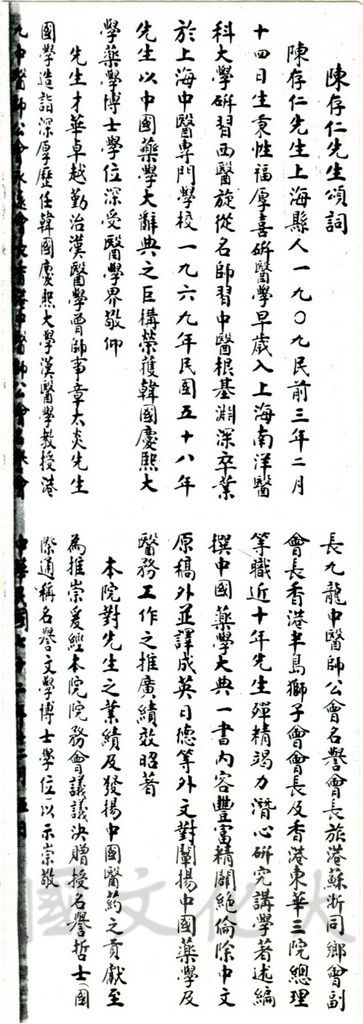 陳存仁先生頌詞
陳存仁先生上海縣人一九〇九民前三年二月
十四日生秉性福厚喜研醫學早歲入上海南洋醫
科大學研習西醫旋從名師習中醫根基淵深卒業
於上海中醫專門學校一九六九年民國五十八年
先生以中國藥學大辭典之巨構榮獲韓國慶熙大
學藥學博士學位深受醫學界敬仰
先生才華卓越勤治漢醫學曾師事章太炎先生
國學造詣深厚歷任韓國慶熙大學漢醫學教授港
九中醫師公會永遠會
長九龍中醫師公會名譽會長旅港蘇浙同鄉會副
會長香港半島獅子會會長及香港東華三院總理
等職近十年先生殫精竭力潛心研究講學著述編
撰中國藥學大典一書內容豐富精闢絕倫除中文
原稿外並譯成英日德等外文對闡揚中國藥學及
醫務工作之推廣績效昭著
本院對先生之業績及發揚中國醫葯之貢獻至
為推崇爰經本院院務會議議決贈授名譽哲士(國
際通稱名譽文學博士學位)以示崇敬
中華民國七十
國文化大